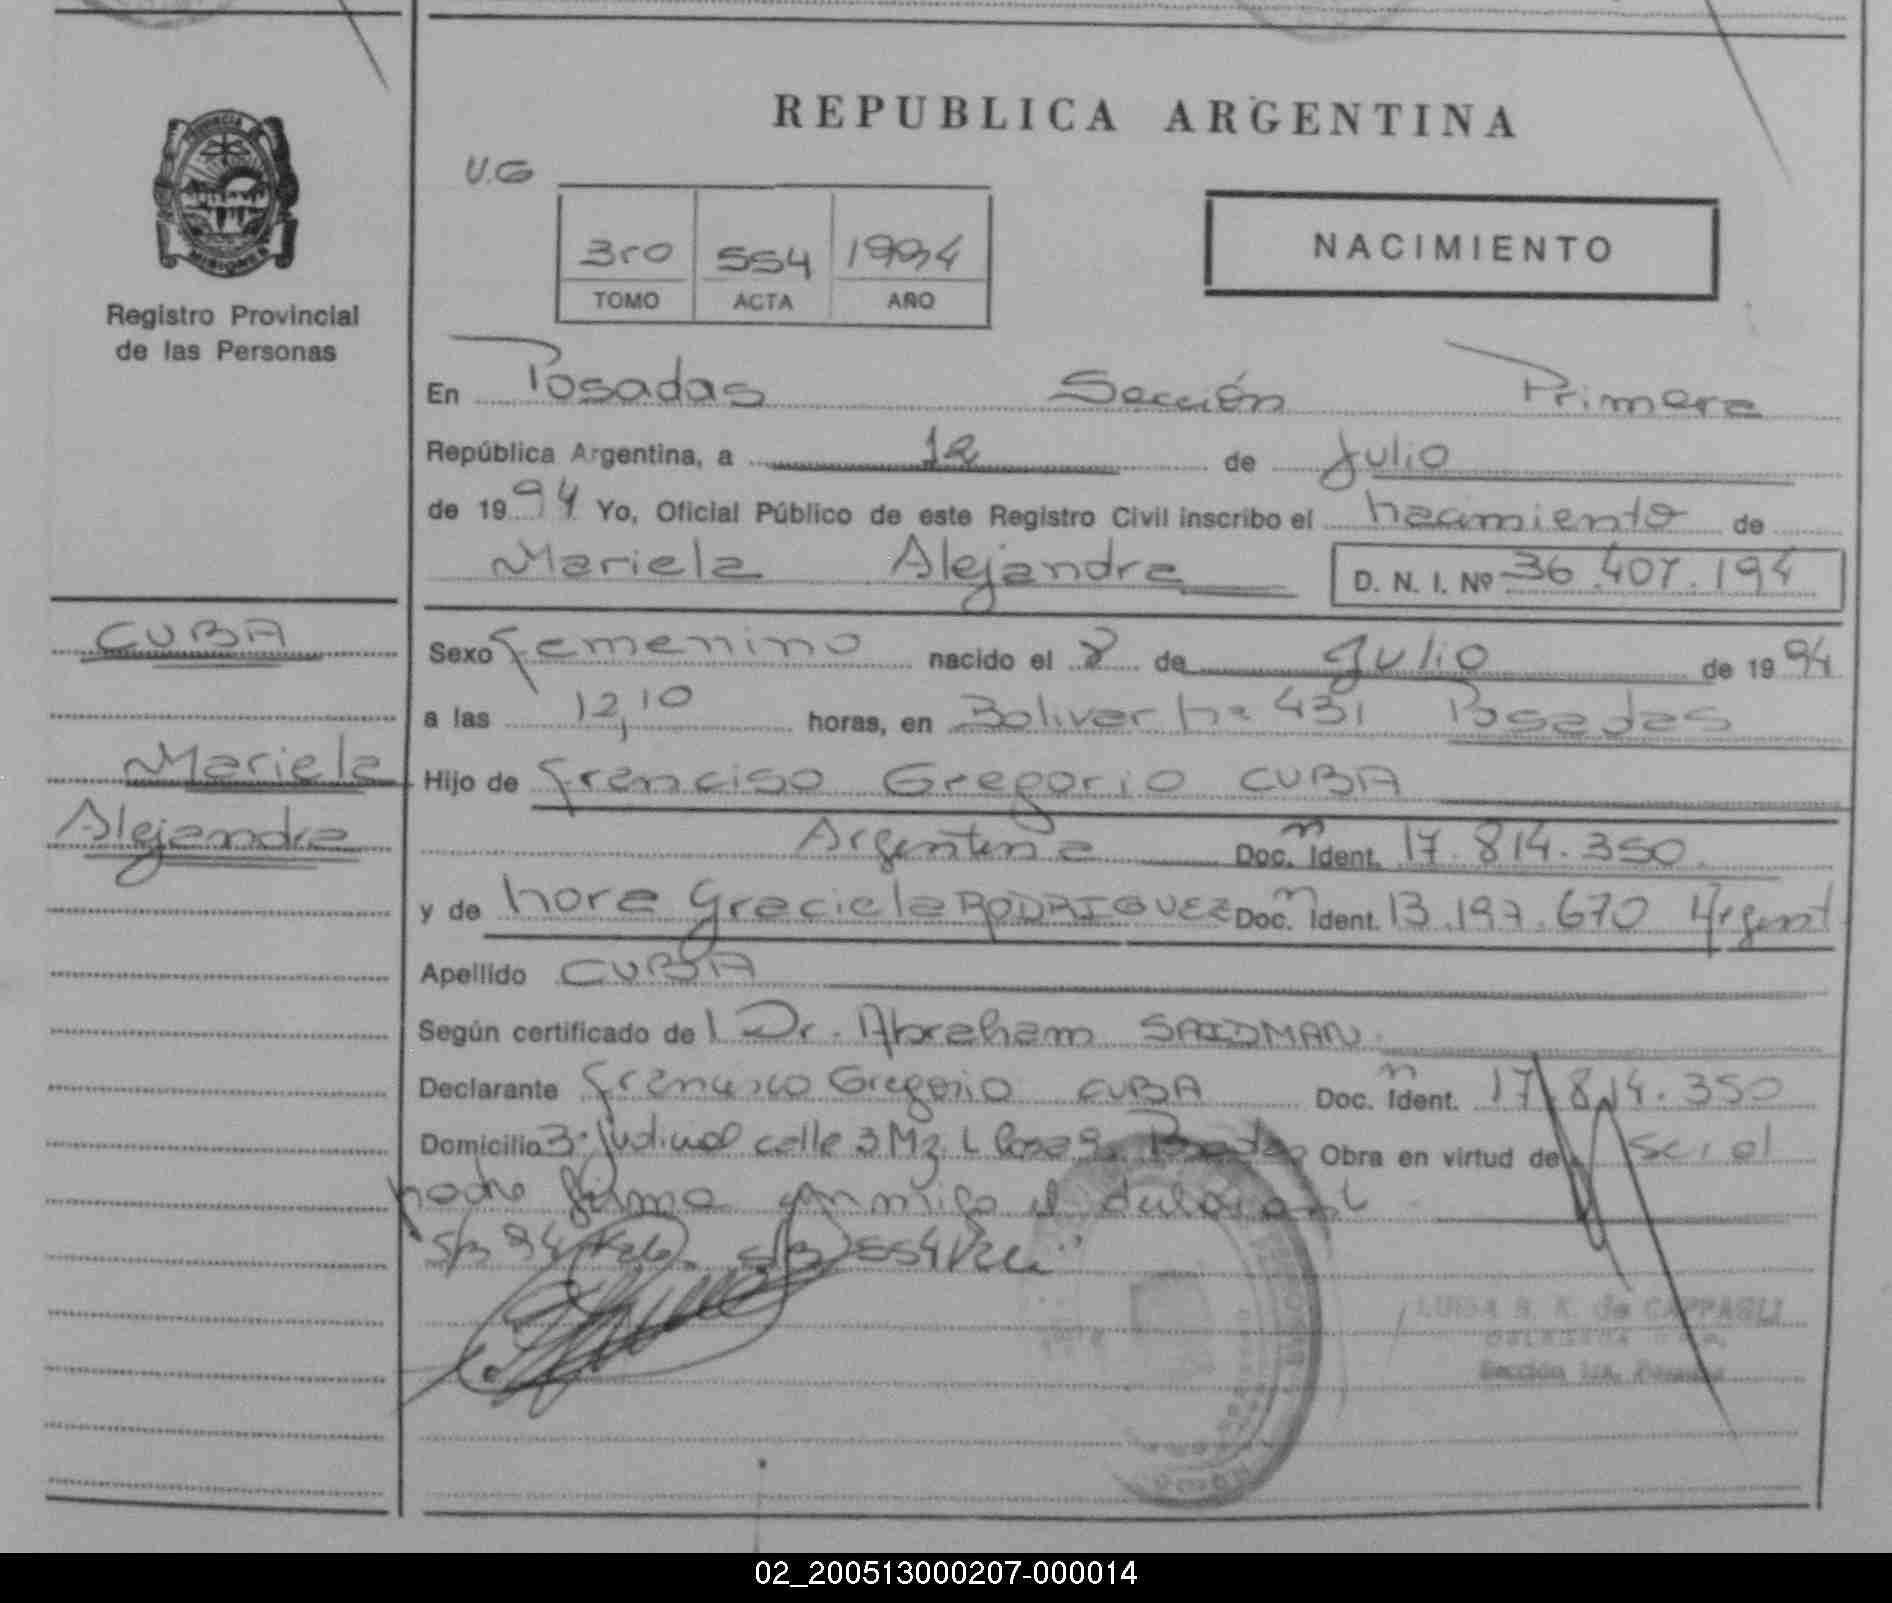 REPUBLICA ARGENTINA
PROVINCIA DE
MISIONES
Registro Provincial
de las Personas
U.G
3ro 554 1994
TOMO ACTA AÑO
NACIMIENTO
En Posadas Sección Primera
República Argentina, a 12 de Julio
de 1994 Yo, Oficial Público de este Registro Civil inscribo el nacimiento de
Mariela Alejandra D. N. I. Nº 36.407.194
CUBA
Sexo femenino nacido el 8 de Julio de 1994
a las 12,10 horas, en Bolivar nº 431 Posadas
Mariela
Hijo de Franciso Gregorio CUBA
Alejandra
Argentina Doc. Ident. 17.814.350.
y de Nora Graciela RODRIGUEZ Doc. Ident. 13.197.670 Argent
Apellido CUBA
Según certificado de Dr. Abraham SAIDMAN.
Declarante Francisco Gregorio CUBA Doc. Ident. 17.814.350
Domicilio calle 3 Mz. L Casa 9 Posadas Obra en virtud de
firma conmigo el
LUISA S. K. de CAPPAGLI
DELEGADA
Sección 1ra. Posadas
02_200513000207-000014